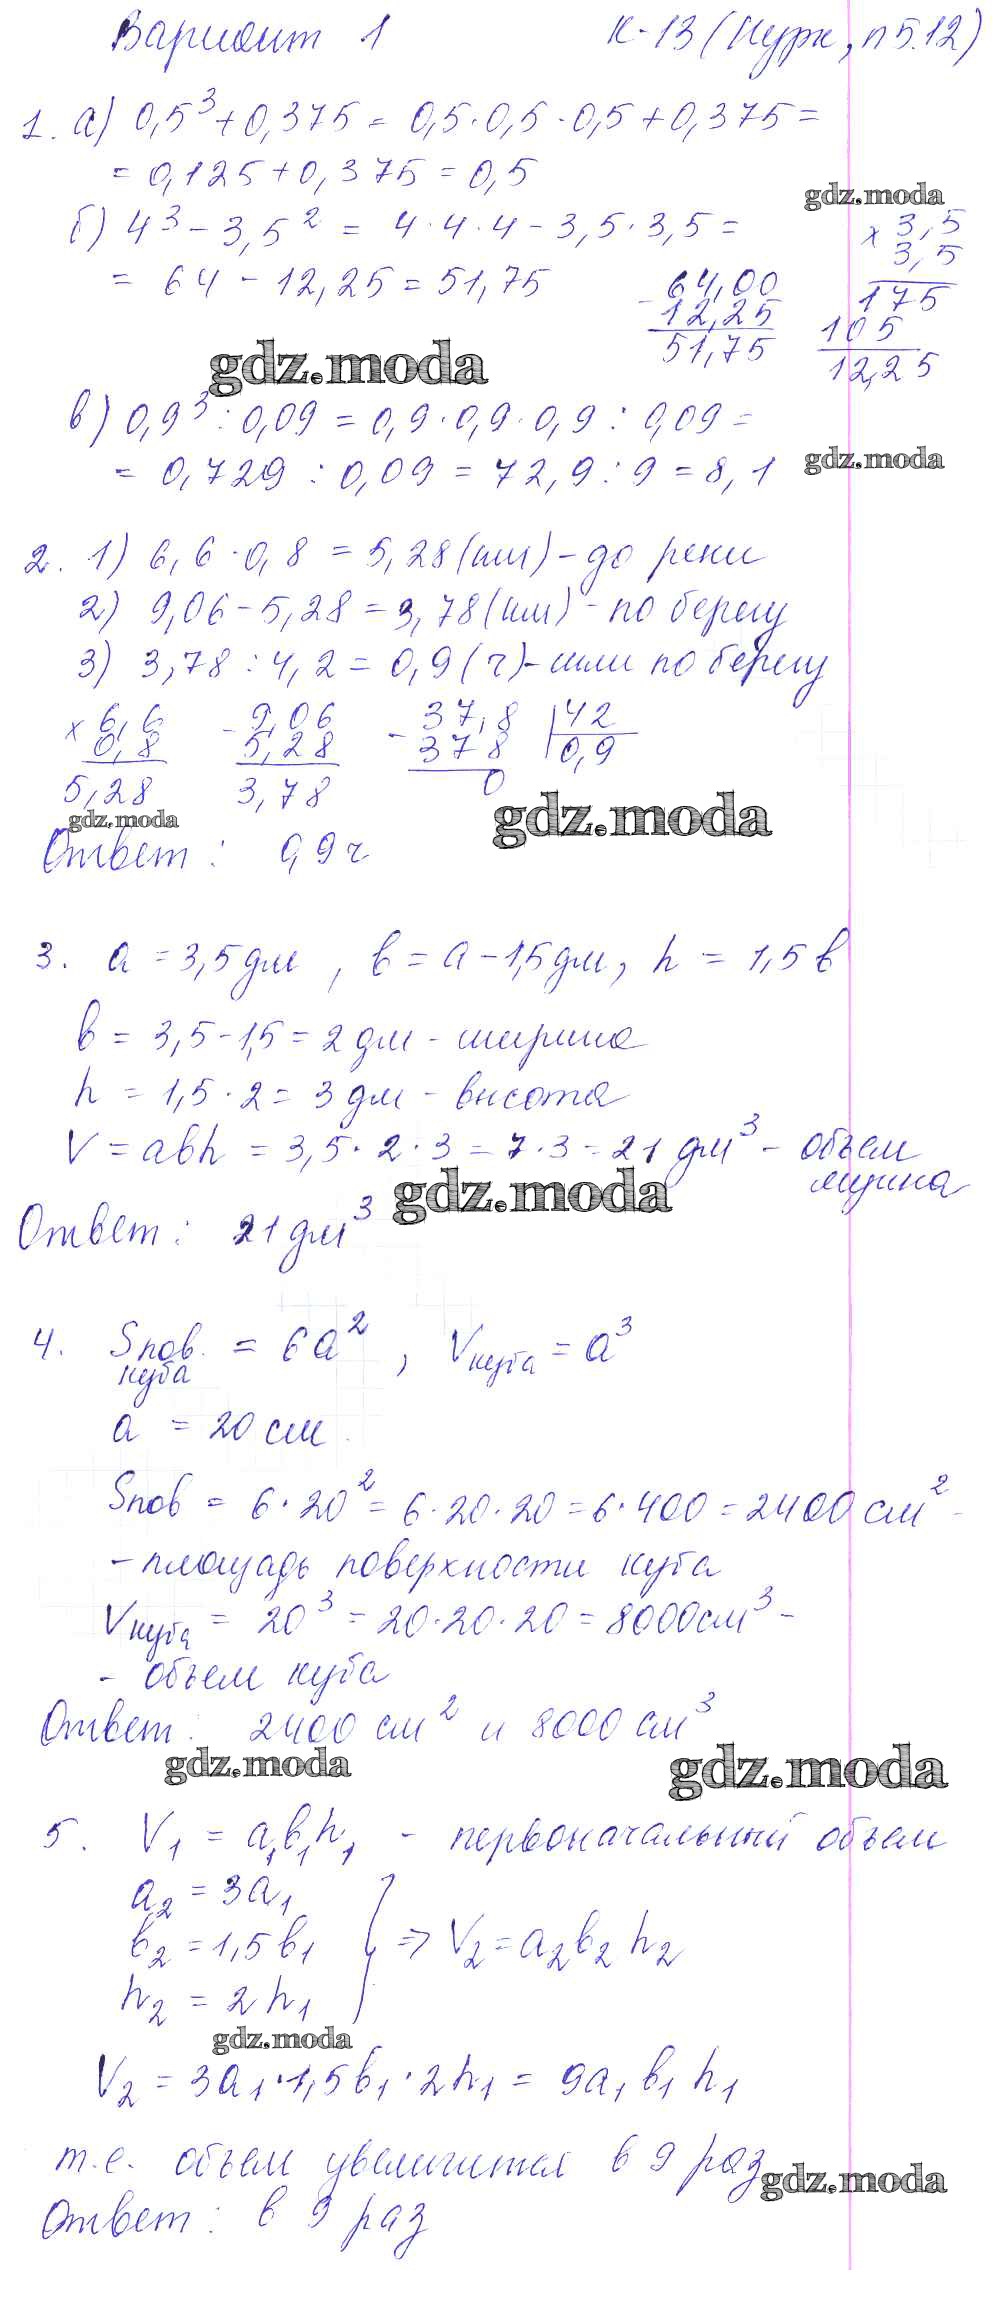 Вариант 1 К-13 (Нурк, п 5.12)
1. а) 0,5³ + 0,375 = 0,5·0,5·0,5 + 0,375 =
= 0,125 + 0,375 = 0,5
gdz.moda
б) 4³ - 3,5² = 4·4·4 - 3,5·3,5 =
= 64 - 12,25 = 51,75
x 3,5
3,5
175
105
12,25
- 64,00
12,25
51,75
gdz.moda
в) 0,9³ : 0,09 = 0,9·0,9·0,9 : 0,09 =
= 0,729 : 0,09 = 72,9 : 9 = 8,1
gdz.moda
2. 1) 6,6 · 0,8 = 5,28 (км) - до реки
2) 9,06 - 5,28 = 3,78 (км) - по берегу
3) 3,78 : 4,2 = 0,9 (ч) - шли по берегу
x 6,6
0,8
5,28
- 9,06
5,28
3,78
- 37,8 | 42
378 | 0,9
0
gdz.moda
gdz.moda
Ответ: 0,9 ч
3. a = 3,5 дм, в = a - 1,5 дм, h = 1,5 в
в = 3,5 - 1,5 = 2 дм - ширина
h = 1,5 · 2 = 3 дм - высота
V = aвh = 3,5 · 2 · 3 = 7 · 3 = 21 дм³ - объем
ящика
gdz.moda
Ответ: 21 дм³
4. Sпов. = 6a², Vкуба = a³
куба
a = 20 см
Sпов = 6 · 20² = 6 · 20 · 20 = 6 · 400 = 2400 см² -
- площадь поверхности куба
Vкуба = 20³ = 20·20·20 = 8000 см³ -
- объем куба
Ответ: 2400 см² и 8000 см³
gdz.moda
gdz.moda
5. V₁ = a₁в₁h₁ - первоначальный объем
a₂ = 3a₁
в₂ = 1,5в₁ } => V₂ = a₂в₂h₂
h₂ = 2h₁
gdz.moda
V₂ = 3a₁ · 1,5в₁ · 2h₁ = 9a₁в₁h₁
т.е. объем увеличится в 9 раз
gdz.moda
Ответ: в 9 раз